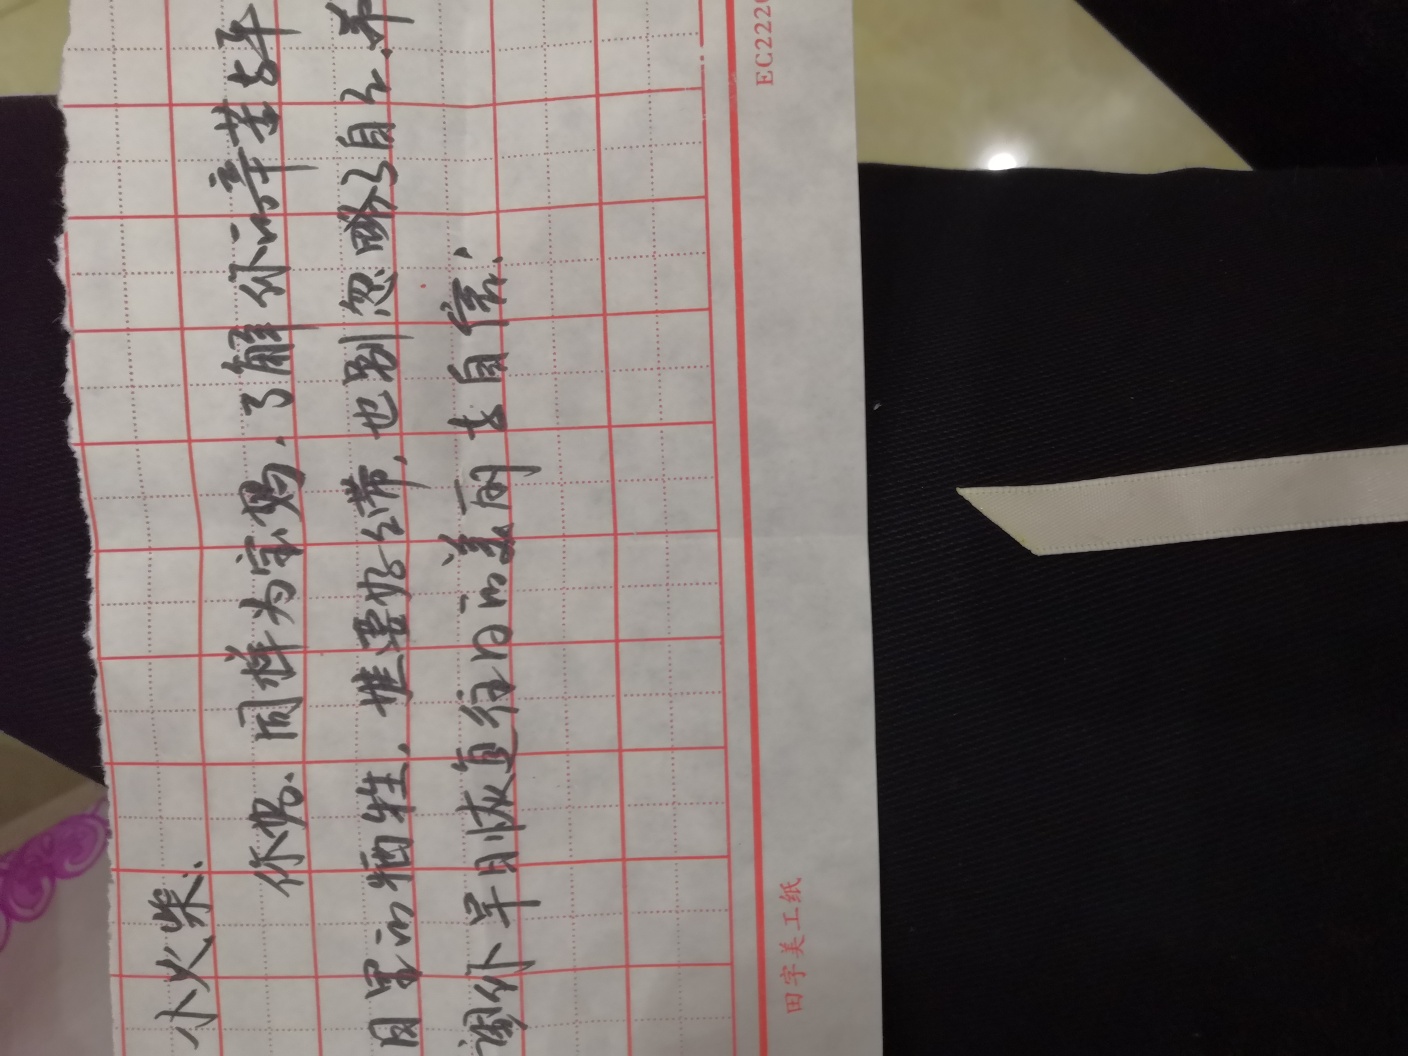 小火柴.
你好. 同样为宝妈, 了解你的辛苦与
因宝的牺牲, 谁遭好公带, 也别忽略了自己.
你早日恢复往日的美丽与自信:
田字美工纸
EC222